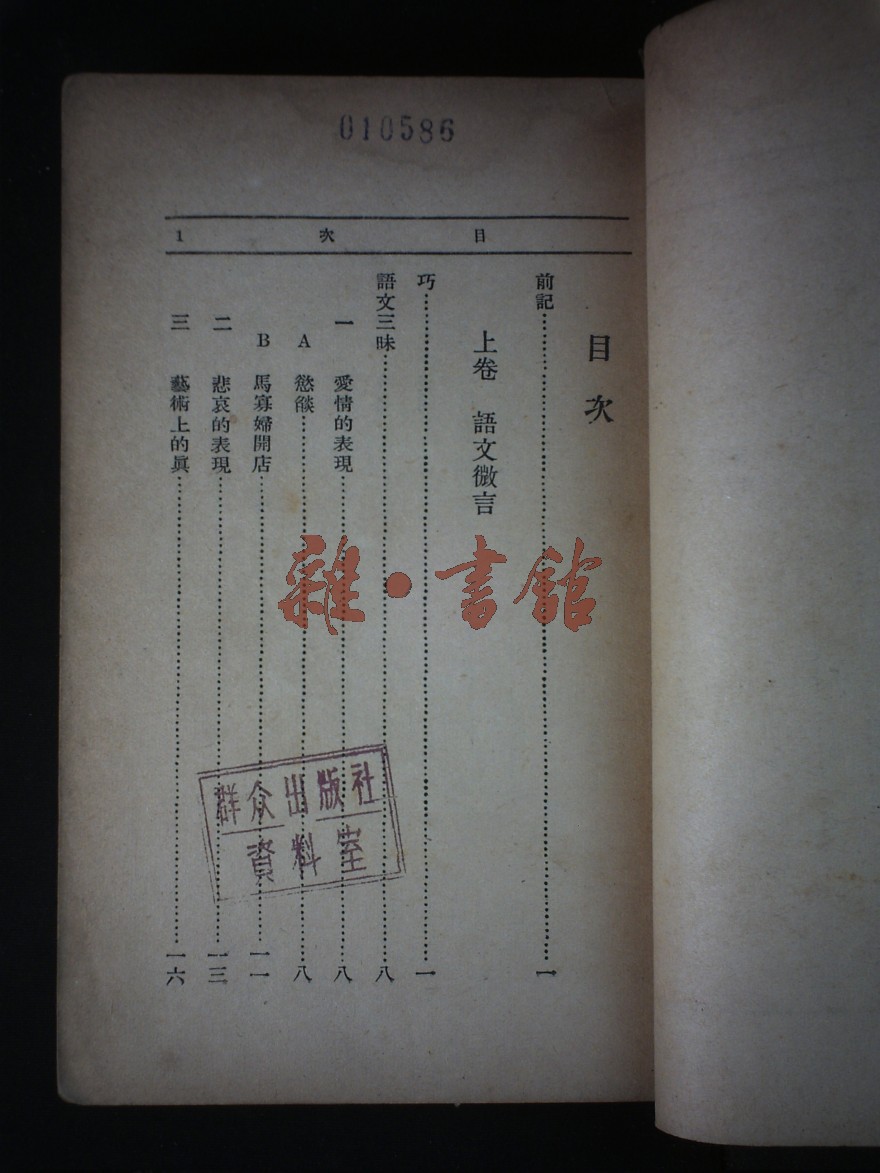 010586
目次 1
目次
前記……一
上卷 語文微言
巧……一
語文三昧……八
一 愛情的表現……八
A 慾燄……八
B 馬寡婦開店……一一
二 悲哀的表現……一三
三 藝術上的眞……一六
雜·書館
群众出版社
資料室